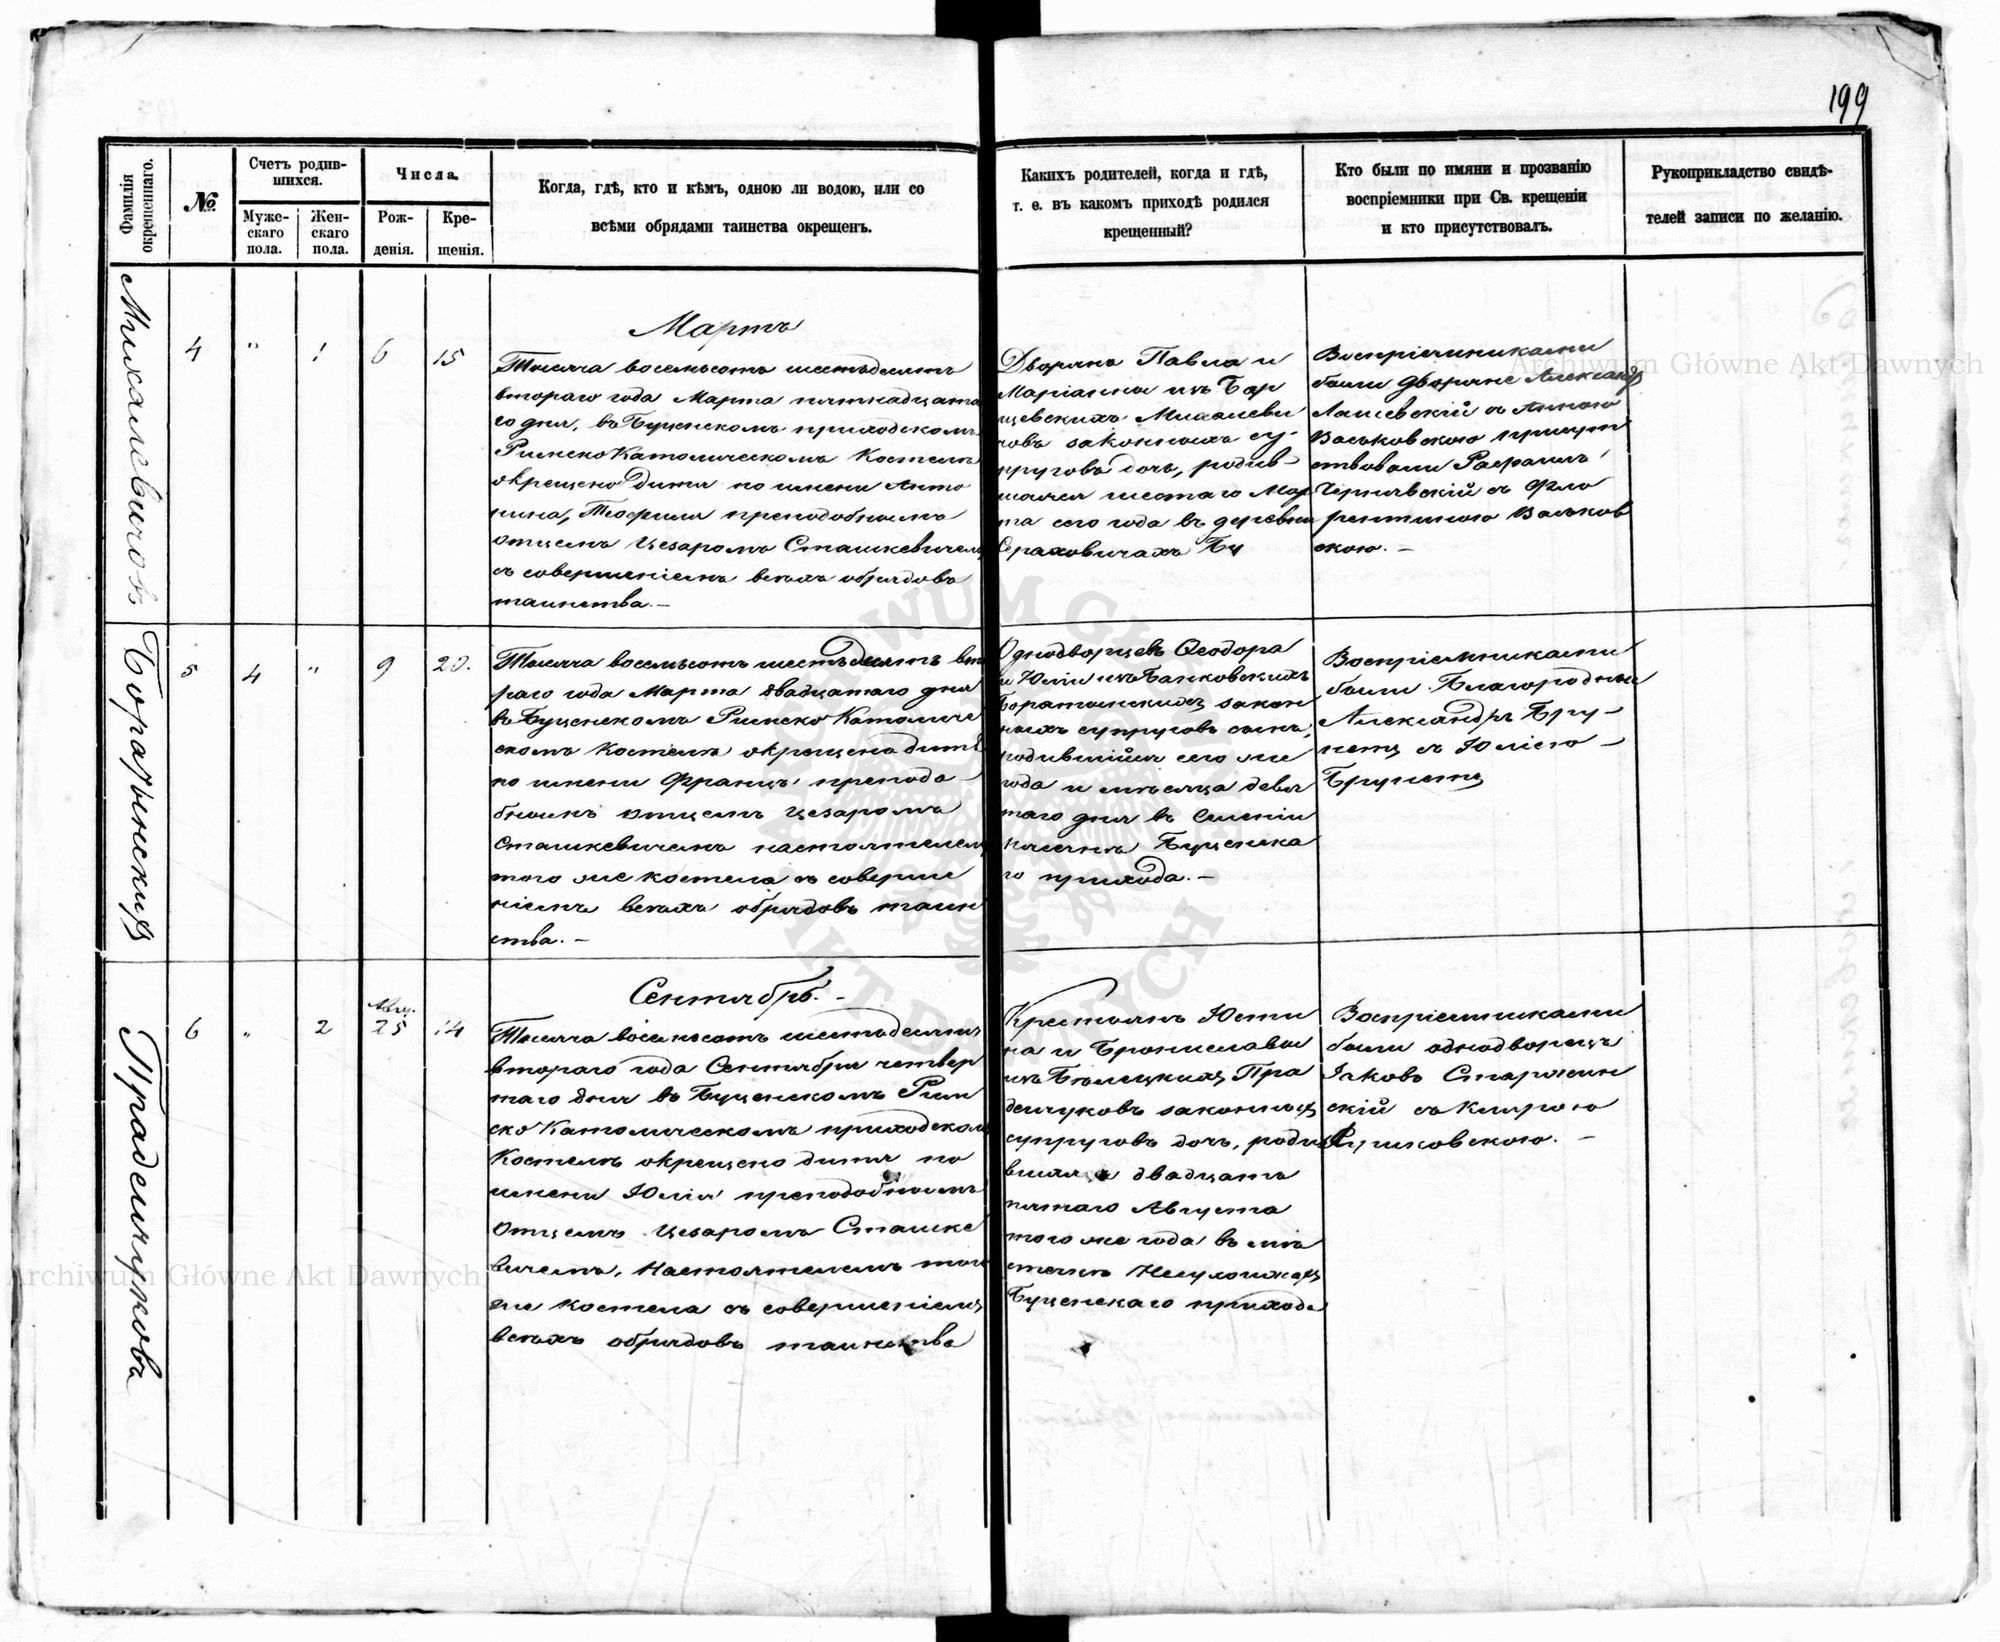 199
Фамилія окрещеннаго.
№
Счетъ родив-
шихся.
Муже-
скаго
пола.
Жен-
скаго
пола.
Числа.
Рож-
денія.
Кре-
щенія.
Когда, гдѣ, кто и кѣмъ, одною ли водою, или со
всѣми обрядами таинства окрещенъ.
Какихъ родителей, когда и гдѣ,
т. е. въ какомъ приходѣ родился
крещенный?
Кто были по имяни и прозванію
воспріемники при Св. крещеніи
и кто присутствовалъ.
Рукоприкладство свидѣ-
телей записи по желанію.
4
"
1
6
15
Мартъ
Тысяча восемьсотъ шестьдесятъ
втораго года Марта пятнадцата
го дня, въ Буценскомъ приходскомъ
Римско Католическомъ Костелѣ
окрещено Дитя по имени Анто
нина, Теофиля преподобнымъ
отцемъ Цезаромъ Сташкевичемъ
съ совершеніемъ всѣхъ обрядовъ
таинства.—
Дворянъ Павла и
Маріанны изъ
законныхъ су-
пруговъ дочь, родив-
шаяся шестаго Мар
та сего года въ деревни
Воспріемниками
были дворяне Александр
съ Анною
Васьковскою присут
ствовали
съ Фло
рентиною Васьков
скою.—
5
4
"
9
20.
Тысяча восемьсотъ шестьдесятъ вто
раго года Марта двадцатаго дня
въ Буценскомъ Римско Католиче
скомъ Костелѣ окрещено дитя
по имени Францъ преподо
бнымъ отцемъ Цезаромъ
Сташкевичемъ настоятелемъ
того же костела съ соверше
ніемъ всѣхъ обрядовъ таин
ства.—
Однодворцевъ Ѳеодора
и Юліи изъ
закон
ныхъ супруговъ сынъ,
родившійся сего же
года и мѣсяца девя
таго дня въ селеніи
Буценска
го прихода.—
Воспріемниками
были Благородный
Александръ Бру-
нетъ съ Юліею
Брунетъ
6
"
2
Авгу.
25
14
Сентябрь.—
Тысяча восемьсотъ шестьдесятъ
втораго года Сентября четвер
таго дня въ Буценскомъ Рим
ско Католическомъ приходскомъ
Костелѣ окрещено дитя по
имени Юлія преподобнымъ
Отцемъ Цезаромъ Сташке
вичемъ, Настоятелемъ того
же костела съ совершеніемъ
всѣхъ обрядовъ таинства
Крестьянъ Юсти
на и Брониславы
изъ Бѣлецкихъ Пра
демчуковъ законныхъ
супруговъ дочь, родив
шаяся двадцать
пятаго Августа
того же года въ мѣ
стечкѣ Несухоижахъ
Буценскаго прихода
Воспріемниками
были однодворецъ
Іаковъ
съ Кларою
Archiwum Główne Akt Dawnych
Archiwum Główne Akt Dawnych
ARCHIWUM GŁÓWNE AKT DAWNYCH